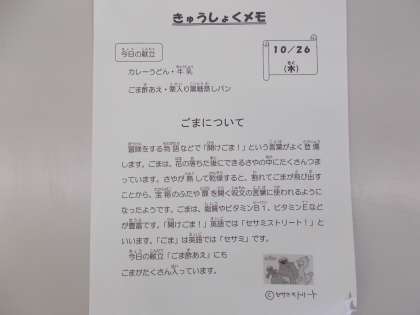 きゅうしょくメモ
今日の献立
10/26
(水)
カレーうどん・牛乳
ごま酢あえ・栗入り黒糖蒸しパン
ごまについて
冒険をする物語などで「開けごま！」という言葉がよく登場
します。ごまは、花の落ちた後にできるさやの中にたくさんつま
っています。さやが熟して乾燥すると、割れてごまが飛び出す
ことから、宝箱のふたや扉を開く呪文の言葉に使われるようにな
なったようです。ごまは、脂質やビタミンB1、ビタミンEなど
が豊富です。「開けごま！」は英語では「セサミストリート！」と
いいます。「ごま」は英語では「セサミ」です。
今日の献立「ごま酢あえ」にも
ごまがたくさん入っています。
©セサミストリート